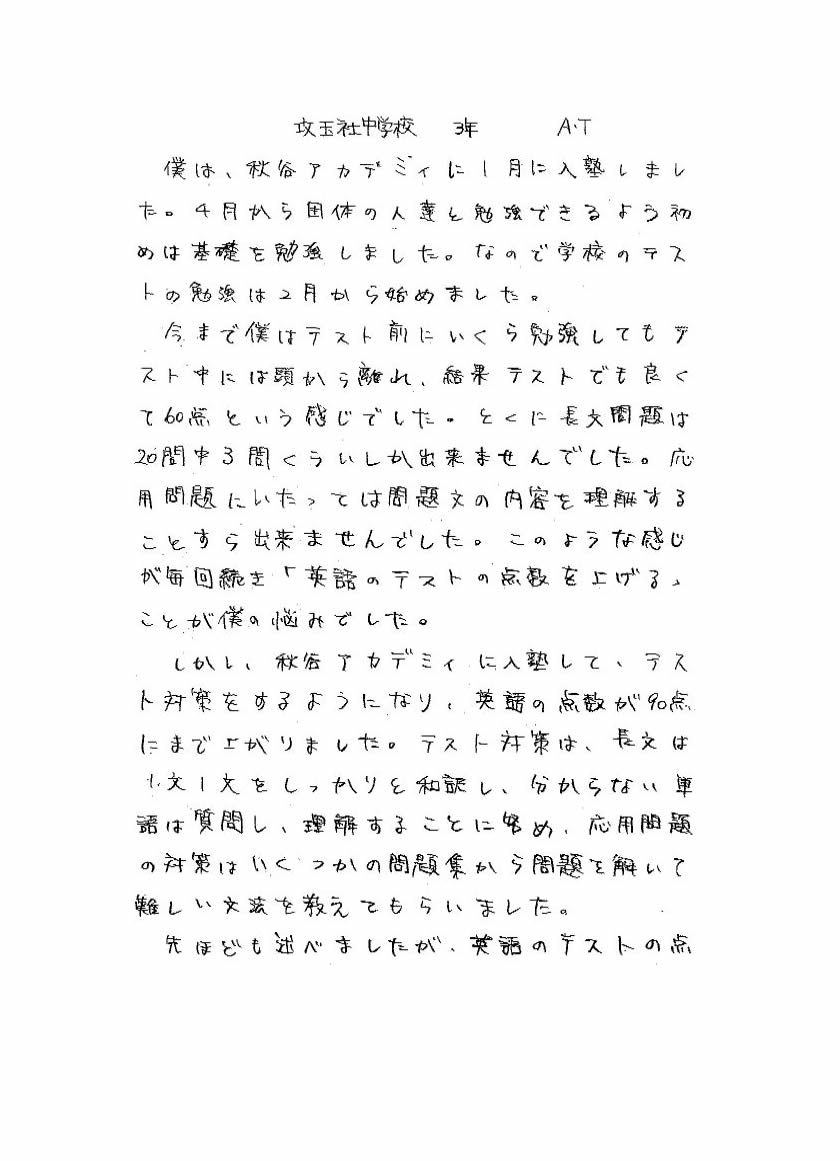 攻玉社中学校 3年 A.T
僕は、秋谷アカデミィに1月に入塾しまし
た。4月から団体の人達と勉強できるよう初
めは基礎を勉強しました。なので学校のテス
トの勉強は2月から始めました。
今まで僕はテスト前にいくら勉強してもテ
スト中には頭から離れ、結果テストでも良く
て60点という感じでした。とくに長文問題は
20問中3問くらいしか出来ませんでした。応
用問題にいたっては問題文の内容を理解する
ことすら出来ませんでした。このような感じ
が毎回続き「英語のテストの点数を上げる」
ことが僕の悩みでした。
しかし、秋谷アカデミィに入塾して、テス
ト対策をするようになり、英語の点数が90点
にまで上がりました。テスト対策は、長文は
1文1文をしっかりと和訳し、分からない単
語は質問し、理解することに努め、応用問題
の対策はいくつかの問題集から問題を解いて
難しい文法を教えてもらいました。
先ほども述べましたが、英語のテストの点